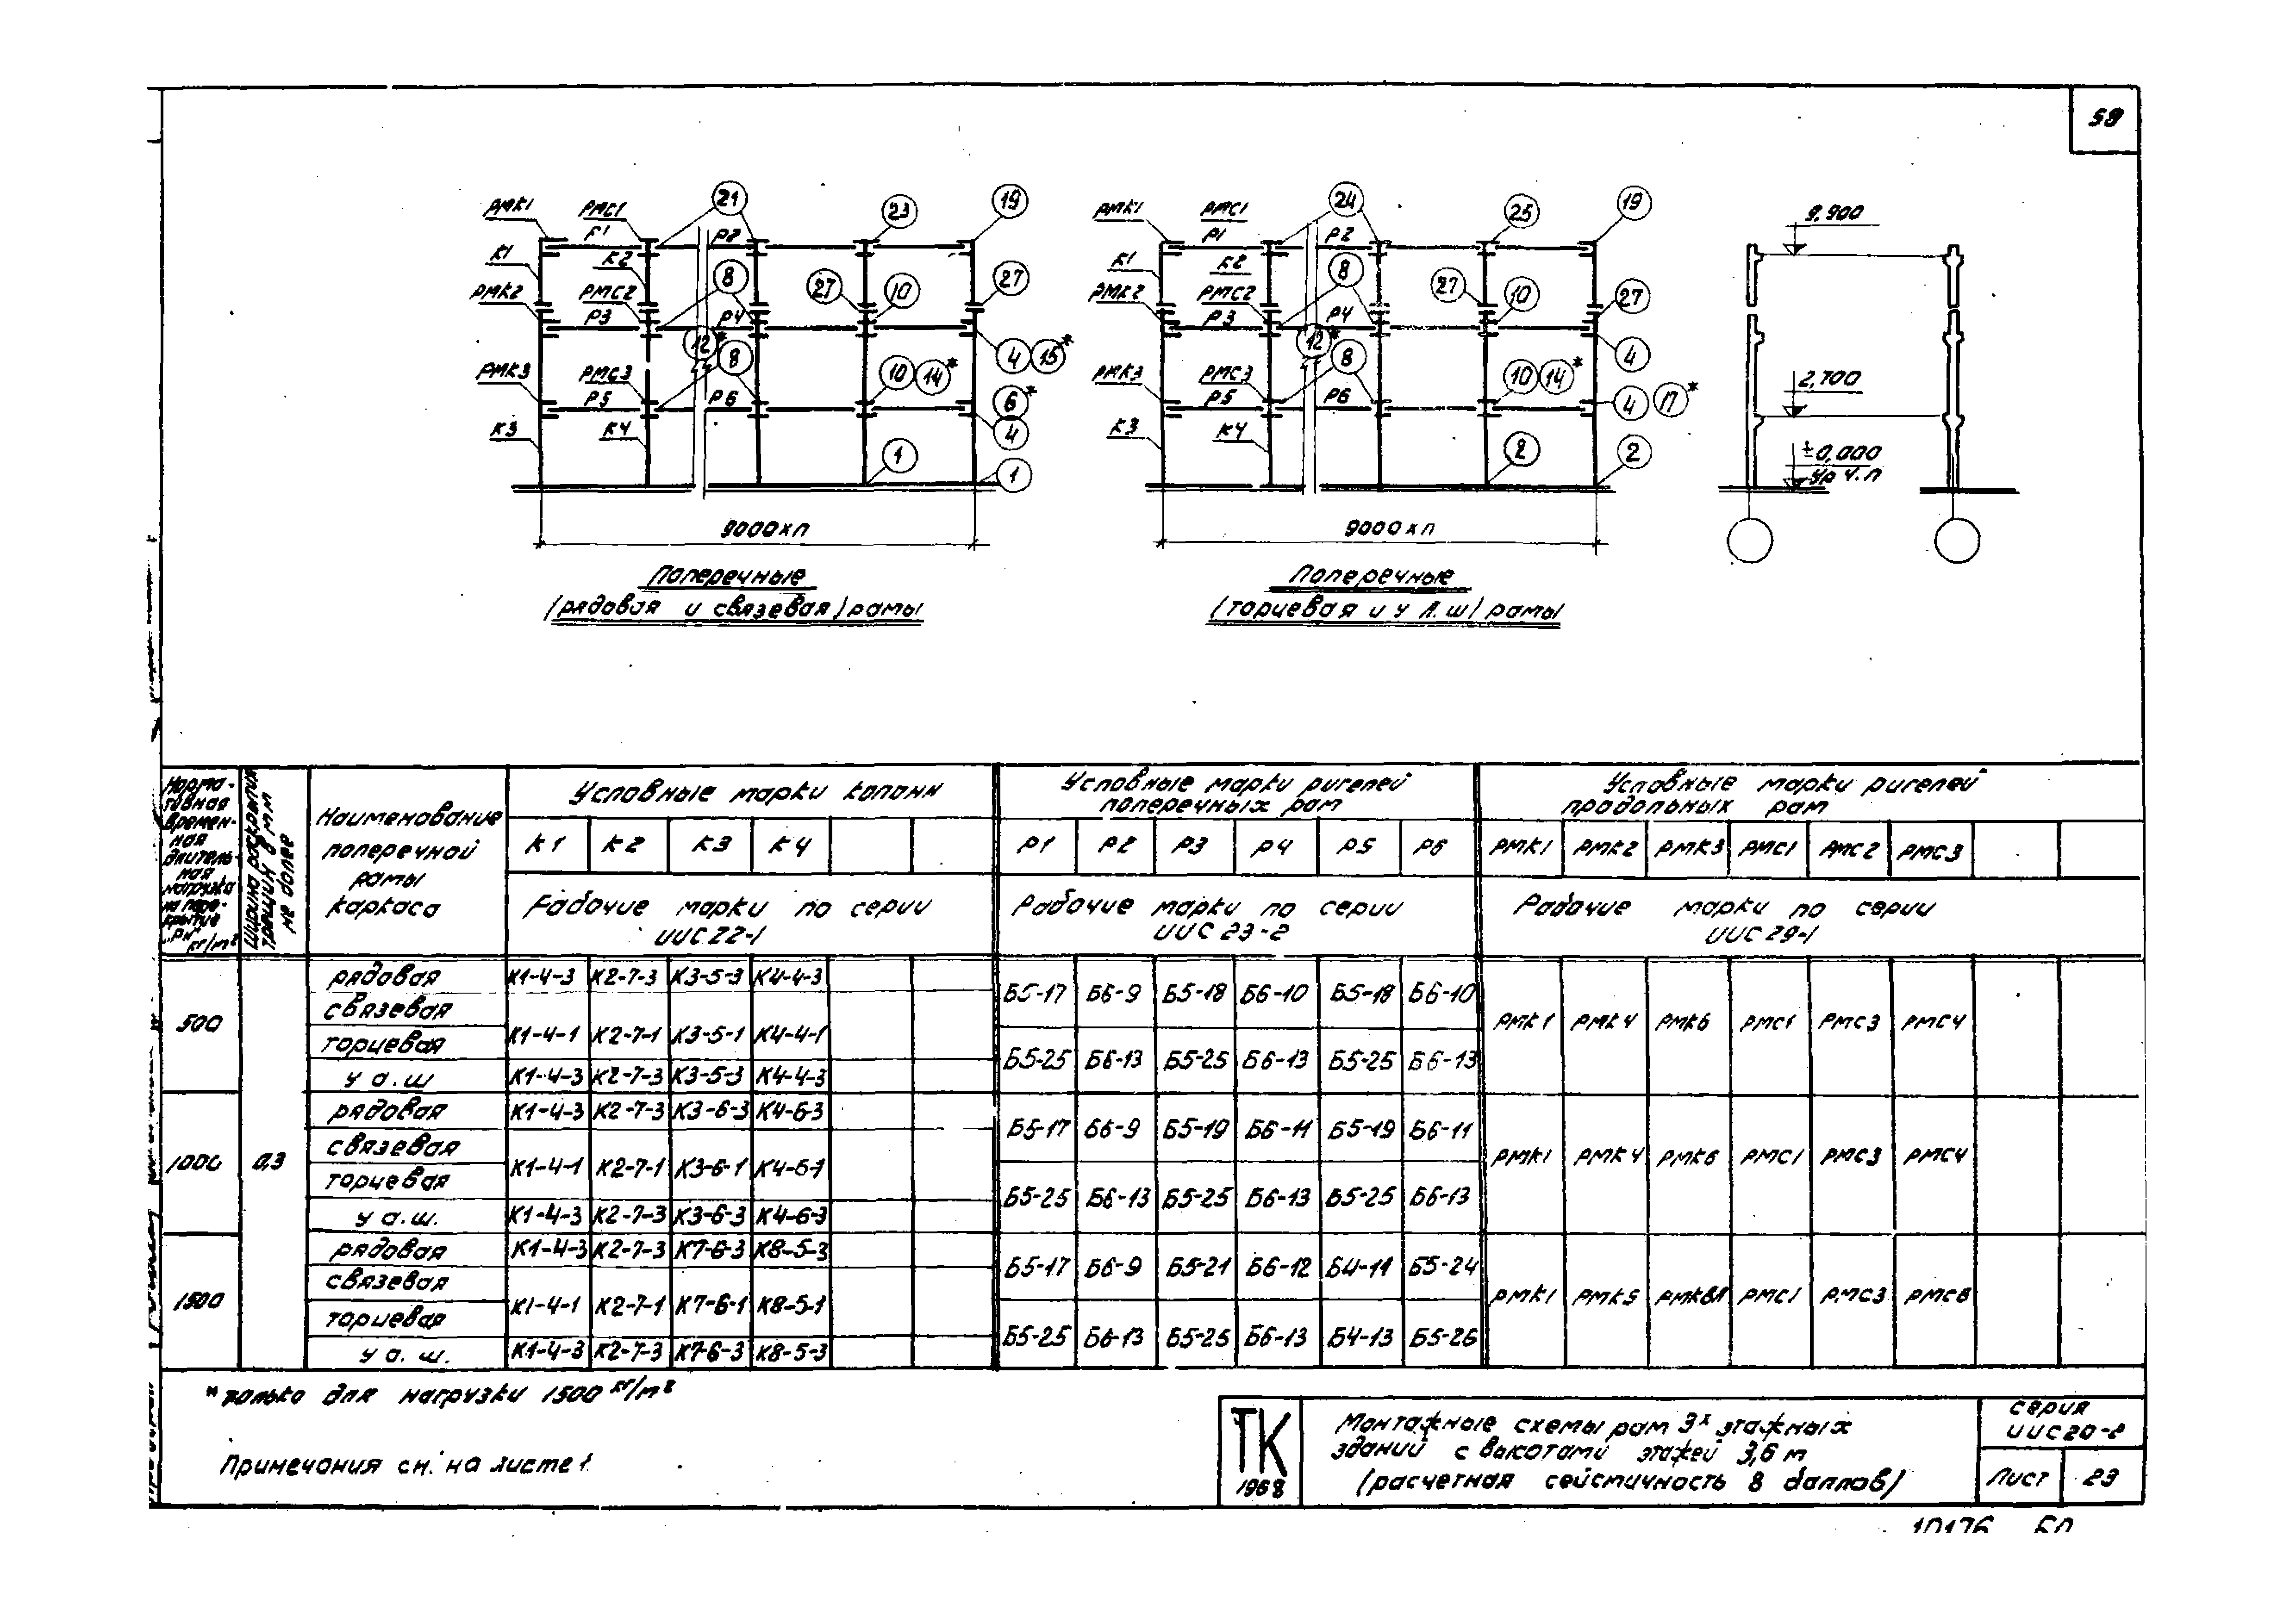 59
РМК1 РМС1 21 23 19
Р1 Р2
К1 К2 8 27 10 27
РМК2 РМС2
Р3 Р4
12* 8 4 15*
РМК3 РМС3 10 14* 6*
Р5 Р6 4
К3 К4
1 1
9000хп
Поперечные
(рядовая и связевая) рамы
РМК1 РМС1 24 25 19
Р1 Р2
К1 К2 8 27 10 27
РМК2 РМС2
Р3 Р4
12* 8 4
РМК3 РМС3 10 14* 4 17*
Р5 Р6
К3 К4
2 2
9000хп
Поперечные
(торцевая и у А.Ш) рамы
9.900
2,700
±0,000
Ур ч.п
Норма-
тивная
времен-
ная
длитель-
ная
нагрузка
на пере-
крытие
"Рн"
кг/м²
Ширина раскрытия
трещин в мм
не более
Наименование
поперечной
рамы
каркаса
Условные марки колонн
К1 К2 К3 К4
Рабочие марки по серии
ИИС22-1
Условные марки ригелей
поперечных рам
Р1 Р2 Р3 Р4 Р5 Р6
Рабочие марки по серии
ИИС 23-2
Условные марки ригелей
продольных рам
РМК1 РМК2 РМК3 РМС1 РМС2 РМС3
Рабочие марки по серии
ИИС 29-1
500
рядовая К1-4-3 К2-7-3 К3-5-3 К4-4-3
связевая
Б5-17 Б6-9 Б5-18 Б6-10 Б5-18 Б6-10
РМК1 РМК4 РМК6 РМС1 РМС3 РМС4
торцевая К1-4-1 К2-7-1 К3-5-1 К4-4-1
Б5-25 Б6-13 Б5-25 Б6-13 Б5-25 Б6-13
у а.ш К1-4-3 К2-7-3 К3-5-3 К4-4-3
1000 0,3
рядовая К1-4-3 К2-7-3 К3-6-3 К4-6-3
Б5-17 Б6-9 Б5-19 Б6-11 Б5-19 Б6-11
связевая
РМК1 РМК4 РМК6 РМС1 РМС3 РМС4
торцевая К1-4-1 К2-7-1 К3-6-1 К4-6-1
Б5-25 Б6-13 Б5-25 Б6-13 Б5-25 Б6-13
у а.ш. К1-4-3 К2-7-3 К3-6-3 К4-6-3
1500
рядовая К1-4-3 К2-7-3 К7-6-3 К8-5-3
Б5-17 Б6-9 Б5-21 Б6-12 Б4-11 Б5-24
связевая
РМК1 РМК5 РМС1 РМС3 РМС6
торцевая К1-4-1 К2-7-1 К7-6-1 К8-5-1
Б5-25 Б6-13 Б5-25 Б6-13 Б4-13 Б5-26
у а. ш. К1-4-3 К2-7-3 К7-6-3 К8-5-3
*только для нагрузки 1500 кг/м²
Примечания см. на листе 1
ТК
1968
Монтажные схемы рам 3х этажных
зданий с высотами этажей 3,6 м
(расчетная сейсмичность 8 баллов)
серия
ИИС20-2
Лист 23
10176 60